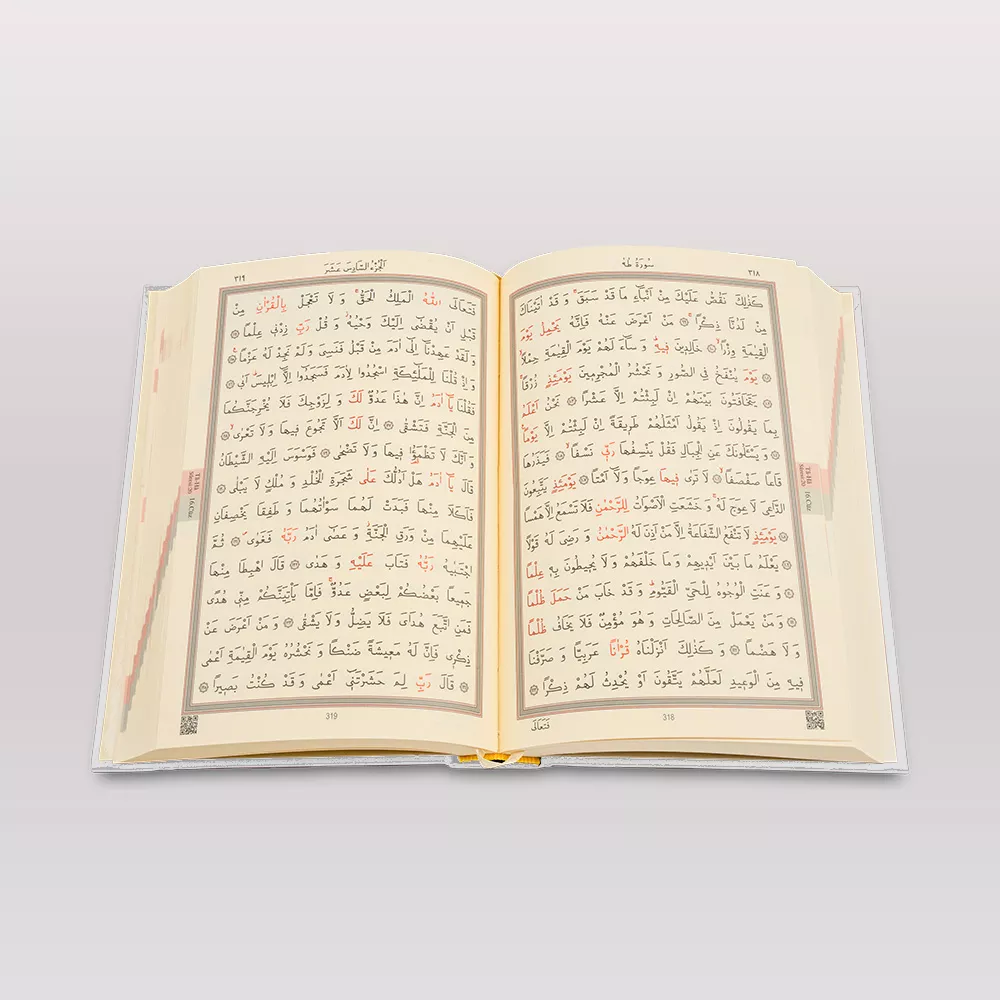 ٣١٨
سُورَةُ طٰهٰ
كَذٰلِكَ نَقُصُّ عَلَيْكَ مِنْ اَنْبَٓاءِ مَا قَدْ سَبَقَۚ وَ قَدْ اٰتَيْنَاكَ
مِنْ لَدُنَّا ذِكْرًاۚ مَنْ اَعْرَضَ عَنْهُ فَاِنَّهُ يَحْمِلُ يَوْمَ
الْقِيٰمَةِ وِزْرًاۙ خَالِدِينَ فِيهِۜ وَ سَٓاءَ لَهُمْ يَوْمَ الْقِيٰمَةِ حِمْلًاۙ
يَوْمَ يُنْفَخُ فِي الصُّورِ وَ نَحْشُرُ الْمُجْرِمِينَ يَوْمَئِذٍ زُرْقًاۚ
يَتَخَافَتُونَ بَيْنَهُمْ اِنْ لَبِثْتُمْ اِلَّا عَشْرًا نَحْنُ اَعْلَمُ
بِمَا يَقُولُونَ اِذْ يَقُولُ اَمْثَلُهُمْ طَرِيقَةً اِنْ لَبِثْتُمْ اِلَّا يَوْمًا۟
وَ يَسْـَٔلُونَكَ عَنِ الْجِبَالِ فَقُلْ يَنْسِفُهَا رَبِّي نَسْفًاۙ فَيَذَرُهَا
قَاعًا صَفْصَفًاۙ لَا تَرٰى فِيهَا عِوَجًا وَلَٓا اَمْتًاۜ يَوْمَئِذٍ يَتَّبِعُونَ
الدَّاعِيَ لَا عِوَجَ لَهُۚ وَ خَشَعَتِ الْاَصْوَاتُ لِلرَّحْمٰنِ فَلَا تَسْمَعُ اِلَّا هَمْسًا
يَوْمَئِذٍ لَا تَنْفَعُ الشَّفَاعَةُ اِلَّا مَنْ اَذِنَ لَهُ الرَّحْمٰنُ وَ رَضِيَ لَهُ قَوْلًا
يَعْلَمُ مَا بَيْنَ اَيْدِيهِمْ وَ مَا خَلْفَهُمْ وَ لَا يُحِيطُونَ بِهِ عِلْمًا
وَ عَنَتِ الْوُجُوهُ لِلْحَيِّ الْقَيُّومِۜ وَ قَدْ خَابَ مَنْ حَمَلَ ظُلْمًا
وَ مَنْ يَعْمَلْ مِنَ الصَّالِحَاتِ وَ هُوَ مُؤْمِنٌ فَلَا يَخَافُ ظُلْمًا
وَ لَا هَضْمًا وَ كَذٰلِكَ اَنْزَلْنَاهُ قُرْاٰنًا عَرَبِيًّا وَ صَرَّفْنَا
فِيهِ مِنَ الْوَعِيدِ لَعَلَّهُمْ يَتَّقُونَ اَوْ يُحْدِثُ لَهُمْ ذِكْرًا
فَتَعَالَى
318
Tâ-Hâ
Sûresi:20
16.Cüz
اَلْجُزْءُ السَّادِسَ عَشَرَ
٣١٩
فَتَعَالَى اللّٰهُ الْمَلِكُ الْحَقُّۚ وَ لَا تَعْجَلْ بِالْقُرْاٰنِ مِنْ
قَبْلِ اَنْ يُقْضٰٓى اِلَيْكَ وَحْيُهُۘ وَ قُلْ رَبِّ زِدْنِي عِلْمًا
وَ لَقَدْ عَهِدْنَٓا اِلٰٓى اٰدَمَ مِنْ قَبْلُ فَنَسِيَ وَلَمْ نَجِدْ لَهُ عَزْمًا۟
وَ اِذْ قُلْنَا لِلْمَلٰٓئِكَةِ اسْجُدُوا لِاٰدَمَ فَسَجَدُٓوا اِلَّٓا اِبْلِيسَۜ اَبٰى
فَقُلْنَا يَٓا اٰدَمُ اِنَّ هٰذَا عَدُوٌّ لَكَ وَ لِزَوْجِكَ فَلَا يُخْرِجَنَّكُمَا
مِنَ الْجَنَّةِ فَتَشْقٰى اِنَّ لَكَ اَلَّا تَجُوعَ فِيهَا وَ لَا تَعْرٰىۙ
وَ اَنَّكَ لَا تَظْمَؤُ۬ا فِيهَا وَلَا تَضْحٰى فَوَسْوَسَ اِلَيْهِ الشَّيْطَانُ
قَالَ يَٓا اٰدَمُ هَلْ اَدُلُّكَ عَلٰى شَجَرَةِ الْخُلْدِ وَ مُلْكٍ لَا يَبْلٰى
فَاَكَلَا مِنْهَا فَبَدَتْ لَهُمَا سَوْاٰتُهُمَا وَ طَفِقَا يَخْصِفَانِ
عَلَيْهِمَا مِنْ وَرَقِ الْجَنَّةِۘ وَ عَصٰٓى اٰدَمُ رَبَّهُ فَغَوٰىۖ ثُمَّ
اجْتَبٰيهُ رَبُّهُ فَتَابَ عَلَيْهِ وَ هَدٰى قَالَ اهْبِطَا مِنْهَا
جَمِيعًا بَعْضُكُمْ لِبَعْضٍ عَدُوٌّۚ فَاِمَّا يَأْتِيَنَّكُمْ مِنِّي هُدًى
فَمَنِ اتَّبَعَ هُدَايَ فَلَا يَضِلُّ وَلَا يَشْقٰى وَ مَنْ اَعْرَضَ عَنْ
ذِكْرِي فَاِنَّ لَهُ مَعِيشَةً ضَنْكًا وَ نَحْشُرُهُ يَوْمَ الْقِيٰمَةِ اَعْمٰى
قَالَ رَبِّ لِمَ حَشَرْتَنِٓي اَعْمٰى وَ قَدْ كُنْتُ بَصِيرًا
319
Tâ-Hâ
Sûresi:20
16.Cüz